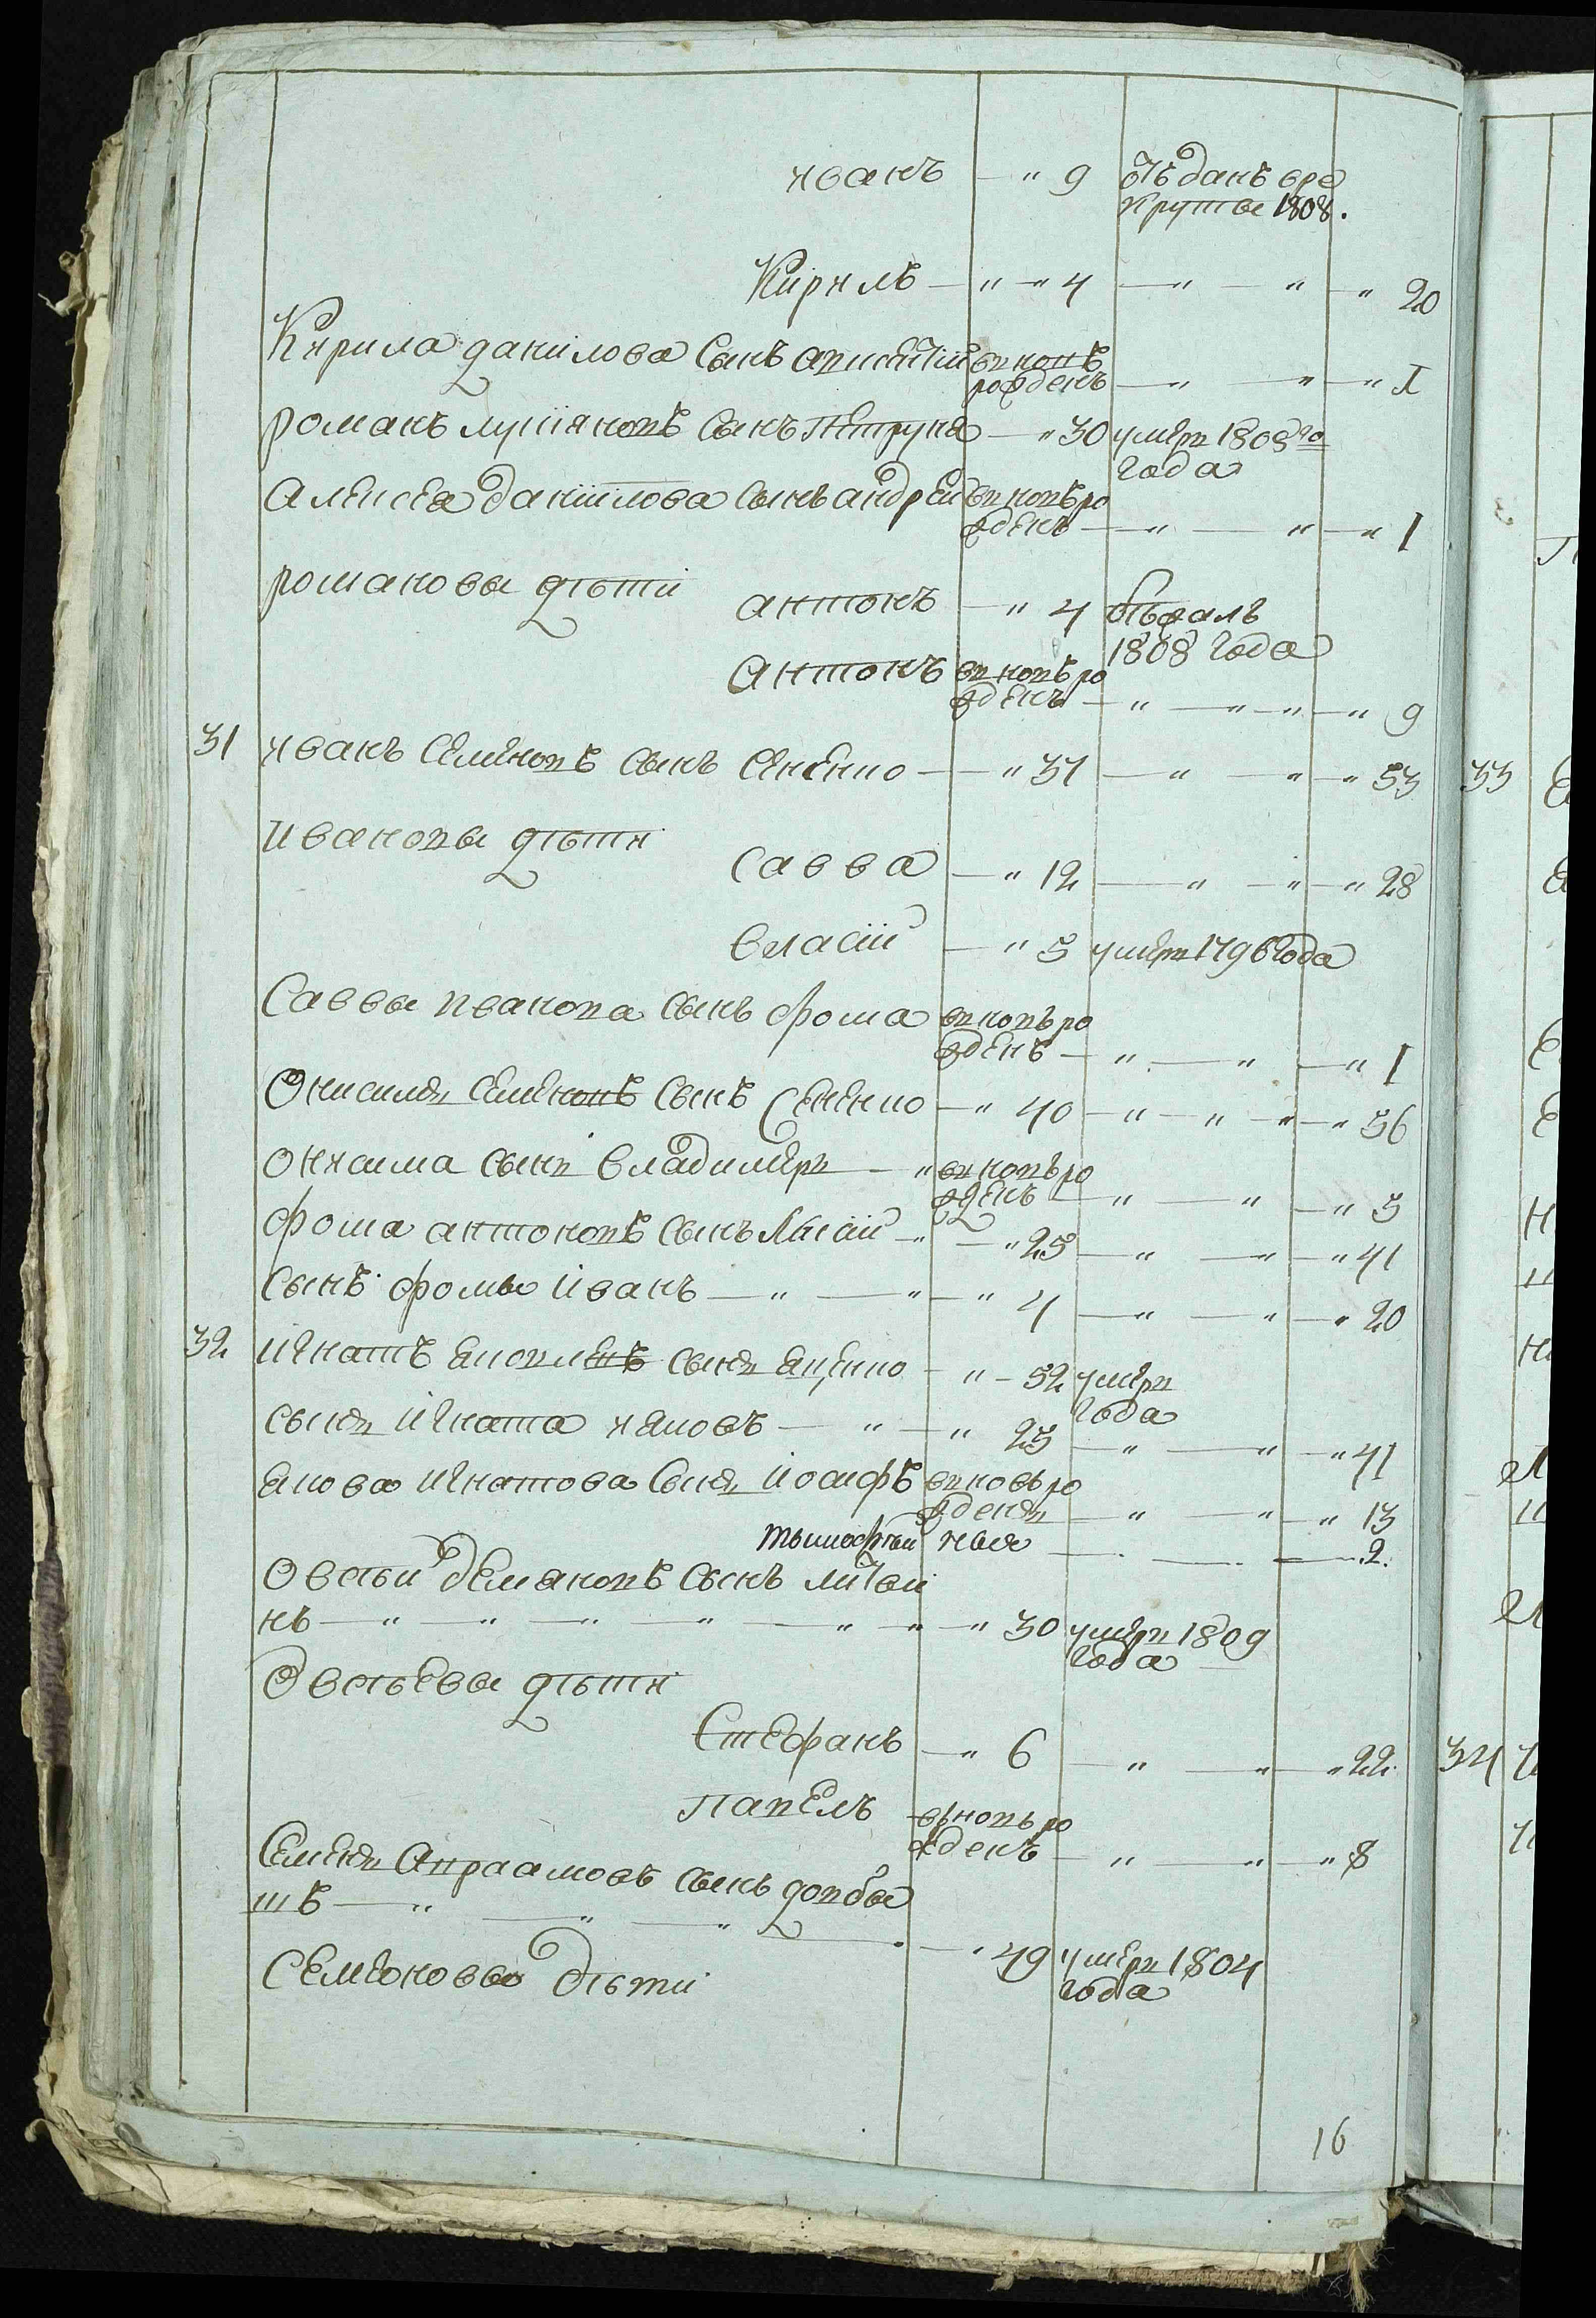 иванъ — „ 9 отъданъ вре
круты 1808.
Кирилъ — „ — „ 4 — „ — „ — „ 20
Кирила данилова Сынъ
рожденъ — „ — „ — „ 1
романъ Сынъ Петруня — „ 30 умеръ 1808 го
года
Алексея даниилова сынъ андрей вновь ро
жденъ — „ — „ — „ 1
романовы дѣти
антонъ — „ 4 бѣжалъ
1808 года
Антонъ вновь ро
жденъ — „ — „ — „ — „ 9
31 иванъ Семеновъ сынъ Сененко — „ 37 — „ — „ — „ 53
ивановы дѣти
Савва — „ 12 — „ — „ — „ 28
власий — „ 5 умеръ 1796 года
Саввы иванова сынъ фома вновь ро
жденъ — „ — „ — „ 1
Онисимъ Семеновъ сынъ Сененко — „ 40 — „ — „ — „ — „ 56
онисима сынъ владимеръ — „ вновь ро
жденъ — „ — „ — „ 5
фома антоновъ сынъ — „ — „ 25 — „ — „ — „ 41
Сынъ фомы иванъ — „ — „ — „ 4 — „ — „ — „ 20
32 игнатъ сынъ яценко — „ — 52 умеръ
года
сынъ игната яковъ — „ — „ 25 — „ — „ — „ 41
якова игнатова сынъ иосифъ вновь ро
жденъ — „ — „ — „ 13
тымофтей — — — 2.
Овстий демяновъ сынъ литви
нъ — „ — „ — „ — „ — „ — „ — „ 30 умеръ 1809
года —
Овстьевы дѣти
Стефанъ — „ 6 — „ — „ — „ 22
Павелъ вновь ро
жденъ — „ — „ — „ 8
Семенъ Авраамовъ сынъ довбы
шъ — „ — „ — „ — „ — „ 49 умеръ 1804
года
Семеновы дѣти
16
33
34